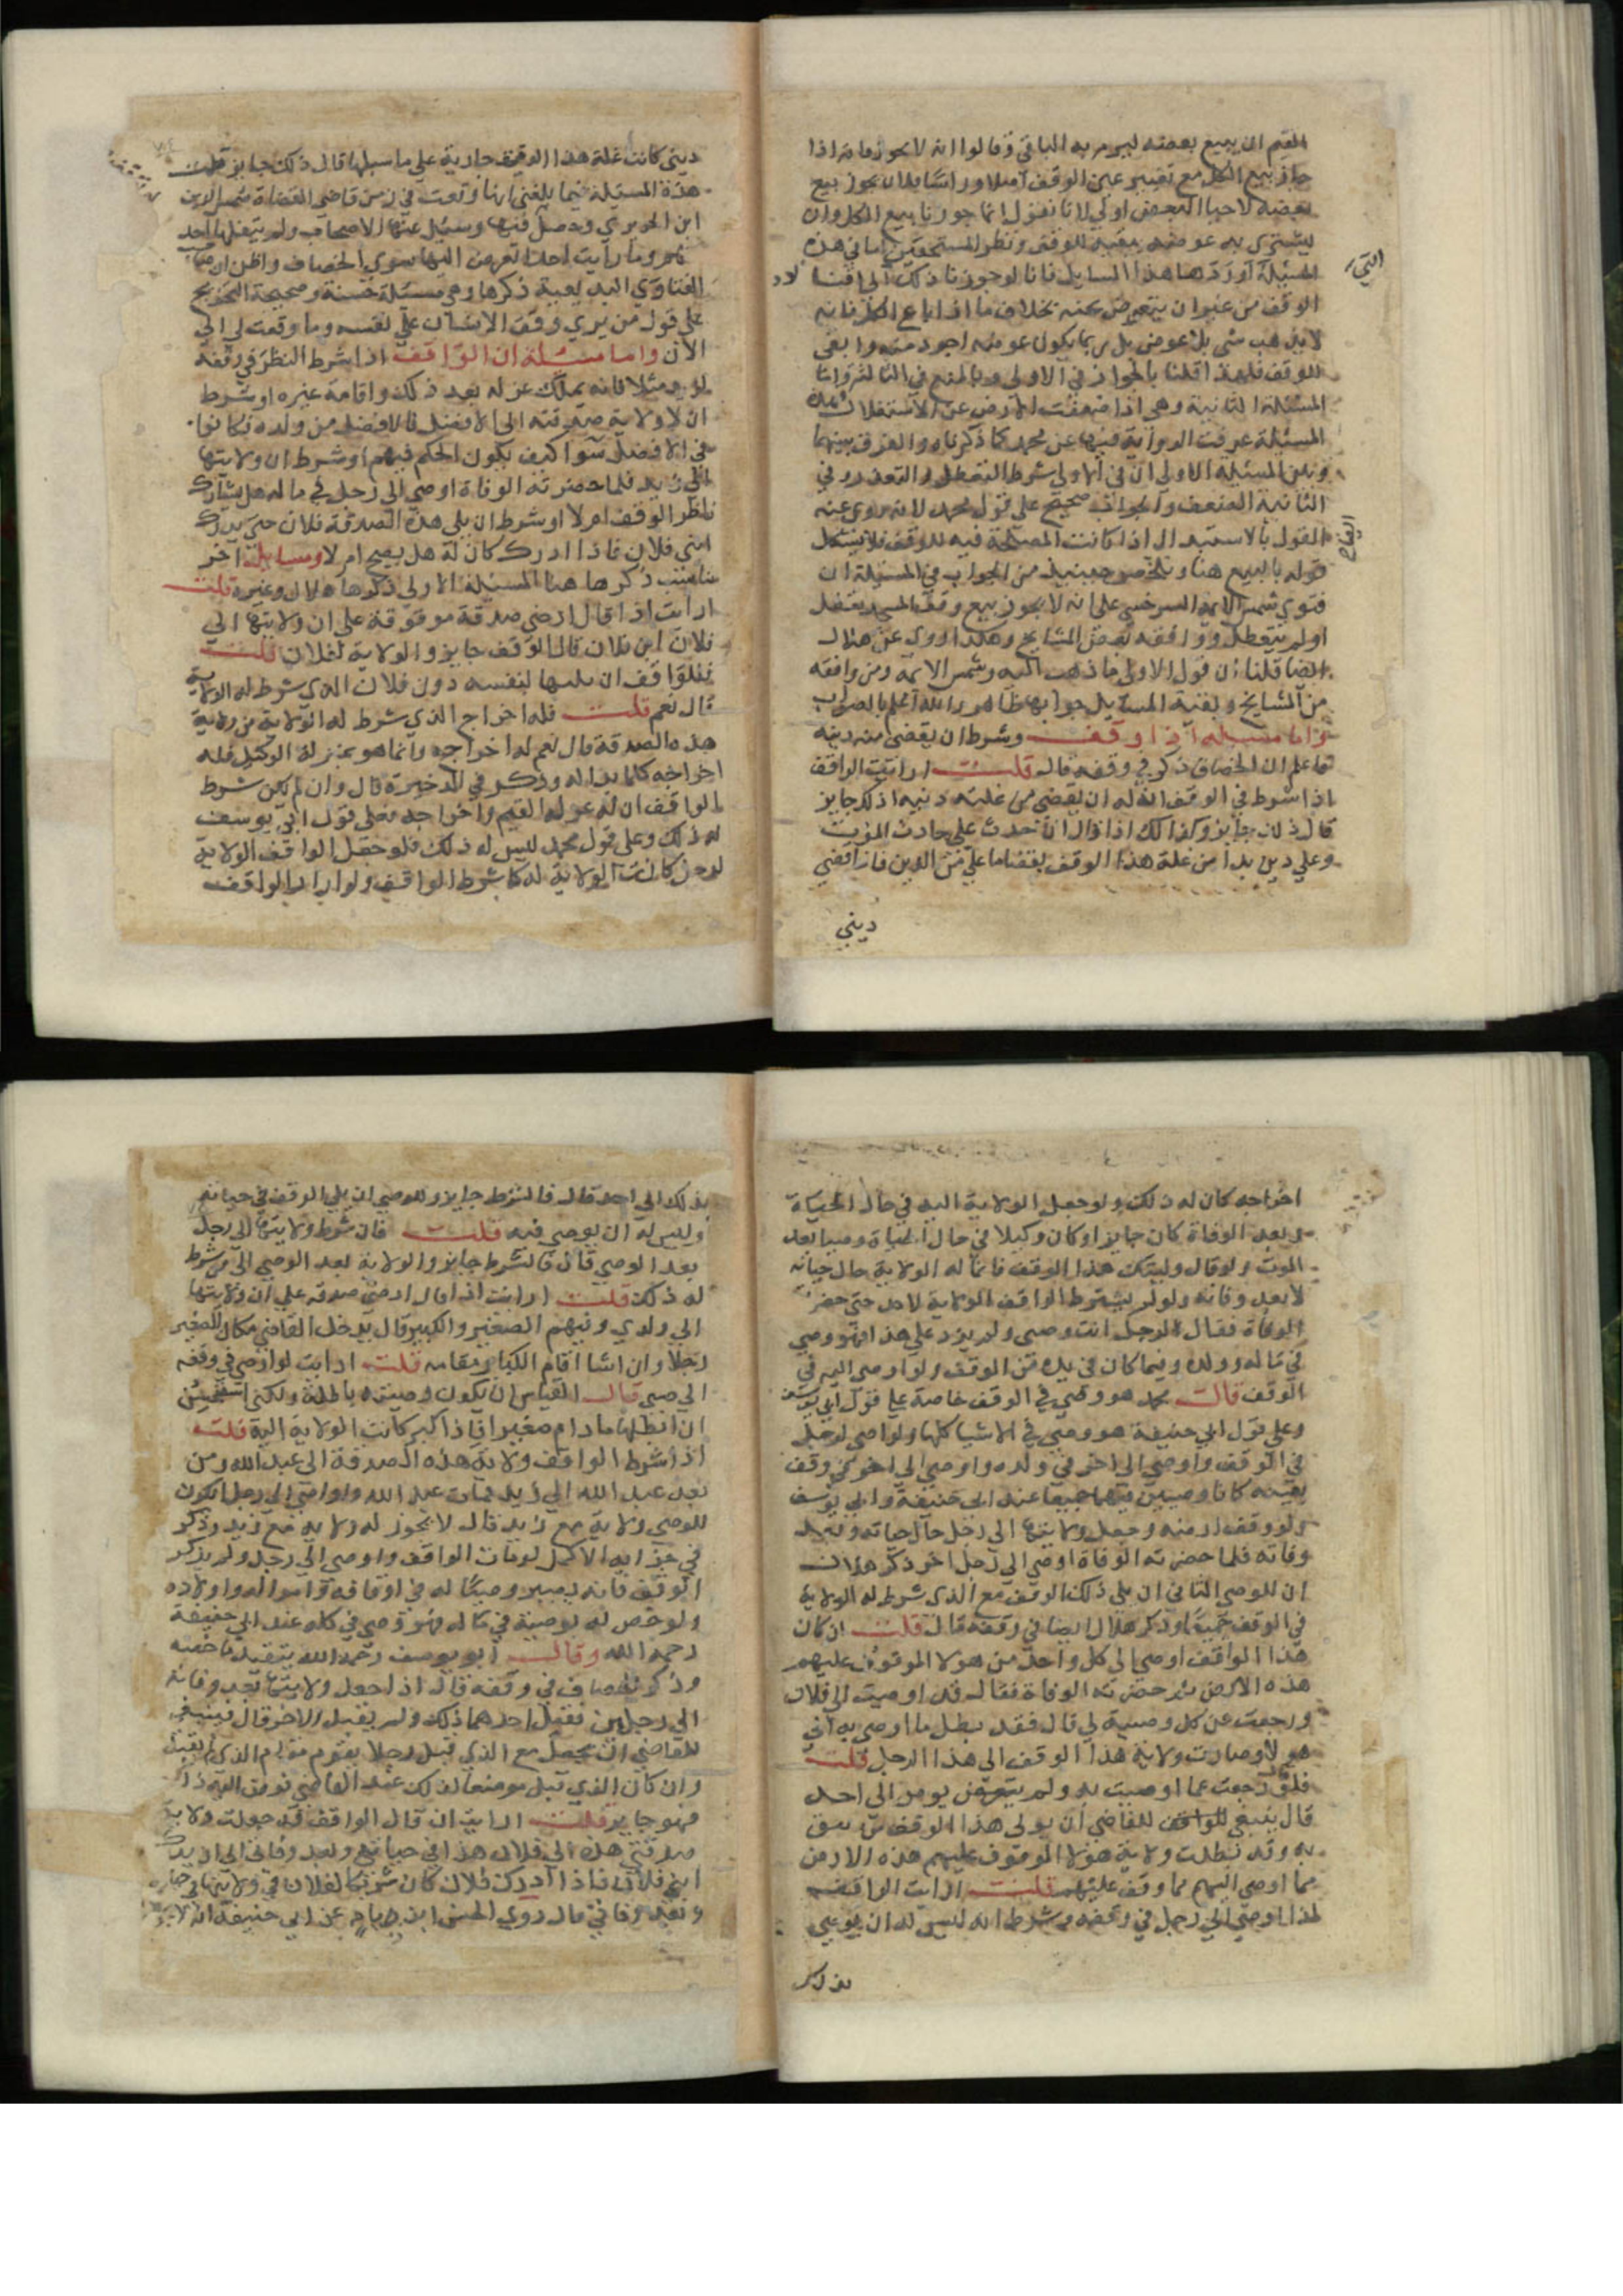 القيم ان يبيع بعضه ليرم به الباقي وقالوا انه لا يجوز فانه اذا
جاز بيع الكل مع تغيير عين الوقف اصلا ورأسا فلان يجوز بيع
بعضه لاحيا البعض اولى لانا نقول انما جوزنا بيع الكل وان
ليشتري به عوضه بقية للوقف ونظر المستحقين اما في هذه
المسئلة التي اوردها هذا السايل فانا لو جوزنا ذلك ادى الى افنا
الوقف من غير ان يتعوض عنه بخلاف ما اذا باع الكل فانه
لا يذهب شي بلا عوض بل ربما يكون عوضه اجود منه وابقى
للوقف فلهذا قلنا بالجواز في الاولى وبالمنع في الثالثة واما
المسئلة الثانية وهي اذا ضعفت الارض عن الاستغلال فهذه
المسئلة عرفت الرواية فيها عن محمد كما ذكرناه والفرق بينهما
وبين المسئلة الاولى ان في الاولى شرط التعطل والتعذر وفي
الثانية الضعف والجواب صحيح على قول محمد لانه روي عنه
القول بالاستبدال اذا كانت المصلحة فيه للوقف فلا يشكل
قوله بالبيع هنا وتلخص حينيذ من الجواب في المسئلة ان
فتوى شمس الايمة السرخسي على انه لا يجوز بيع وقف المسجد تعطل
او لم يتعطل ووافقه بعض المشايخ وهكذا روي عن هلال
ايضا قلنا ان قول الاولى ما ذهب اليه شمس الائمة ومن وافقه
من المشايخ وبقية المسايل جوابها ظاهر والله اعلم بالصواب
واما مسئلة اذا وقف وشرط ان يقضى منه دينه
فاعلم ان الخصاف ذكر في وقفه قال قلت ارايت الواقف
اذا شرط في الوقف ان له ان يقضي من غلته دينه اذلك جايز
قال ذلك جايز وكذلك اذا قال ان حدث علي حادث الموت
وعلي دين بدا من غلة هذا الوقف بقضا ما علي من الدين فاذا قضي
ديني
ديني كانت غلة هذا الوقف جارية على ما سبلها قال ذلك جايز قلت
هذه المسئلة فيما بلغني انها وقعت في زمن قاضي القضاة شمس الدين
ابن الحريري وحصل فيها وسئل عنها الاصحاب ولم ينقلها احد
منهم وما رايت احدا تعرض اليها سوى الخصاف واظن ان صاحب
الفتاوى البديعية ذكرها وهي مسئلة حسنة وصحيحة التخريج
على قول من يرى وقف الانسان على نفسه وما وقعت لي الى
الان واما مسئلة ان الواقف اذا شرط النظر في وقفه
لزيد مثلا فانه يملك عزله بعد ذلك واقامة غيره او شرط
ان لا ولاية صدقته الى الافضل فالافضل من ولده فكانوا
في الافضل سوا كيف يكون الحكم فيهم او شرط ان ولايتها
الى زيد فلما حضرته الوفاة اوصى الى رجل في ماله هل يشارك
ناظر الوقف ام لا او شرط ان يلي هذه الصدقة فلان حتى يدرك
ابني فلان فاذا ادرك كان له هل يصح ام لا ومسايل اخر
تناسب ذكرها هنا المسئلة الاولى ذكرها هلال وغيره قلت
ارايت اذا قال ارضي صدقة موقوفة على ان ولايتها الى
فلان ابن فلان قال الوقف جايز والولاية لفلان قلت
فللواقف ان يليها لنفسه دون فلان الذي شرط له الولاية
قال نعم قلت فله اخراج الذي شرط له الولاية من ولاية
هذه الصدقة قال نعم له اخراجه وانما هو بمنزلة الوكيل فله
اخراجه كلما بدا له وذكر في الذخيرة قال وان لم يكن شرط
الواقف ان له عزل القيم واخراجه فعلى قول ابي يوسف
له ذلك وعلى قول محمد ليس له ذلك فلو جعل الواقف الولاية
لرجل كانت الولاية له كما شرط الواقف ولو اراد الواقف
اخراجه كان له ذلك ولو جعل الولاية اليه في حال الحياة
وبعد الوفاة كان جايزا وكان وكيلا في حال الحياة وصيا بعد
الموت ولو قال وليتك هذا الوقف فانما له الولاية حال حياته
لا بعد وفاته ولو لم يشترط الواقف الولاية لاحد حتى حضرته
الوفاة فقال لرجل انت وصيي ولم يزد على هذا فهو وصي
في ماله وولده وفيما كان في يده من الوقف ولو اوصى اليه في
الوقف قال محمد هو وصي في الوقف خاصة على قول ابي يوسف
وعلى قول ابي حنيفة هو وصي في الاشيا كلها ولو اوصى لرجل
في الوقف واوصى الى اخر في ولده واوصى الى اخر في وقف
بعينه كانا وصيين فيهما جميعا عند ابي حنيفة وابي يوسف
ولو وقف ارضه وجعل ولايتها الى رجل حال حياته وبعد
وفاته فلما حضرته الوفاة اوصى الى رجل اخر ذكر هلال
ان للوصي الثاني ان يلي ذلك الوقف مع الذي شرط له الولاية
في الوقف جميعا وذكر هلال ايضا في وقفه قال قلت ان كان
هذا الواقف اوصى الى كل واحد من هولا الموقوف عليهم
هذه الارض ثم حضرته الوفاة فقال قد اوصيت الى فلان
ورجعت عن كل وصية لي قال فقد بطل ما اوصى به الى
هولا وصارت ولاية هذا الوقف الى هذا الرجل قلت
فلو قال رجعت عما اوصيت به ولم يوص الى احد
قال ينبغي للقاضي ان يولي هذا الوقف من يثق
به وقد بطلت ولاية هولا الموقوف عليهم هذه الارض
مما اوصى اليهم مما وقف عليهم قلت ارايت الواقف
اذا اوصى الى رجل في وقفه وشرط انه ليس له ان يوصي
بذلك
بذلك الى احد قال فالشرط جايز وللوصي ان يلي الوقف في حياته
وليس له ان يوصي فيه قلت فان شرط ولايتها الى رجل
بعد الوصي قال فالشرط جايز والولاية بعد الوصي الى من شرط
له ذلك قلت ارايت اذا قال ارضي صدقة على ان ولايتها
الى ولدي وفيهم الصغير والكبير قال يدخل القاضي مكان الصغير
رجلا وان شا اقام الكبار مقامه قلت ارايت لو اوصى في وقفه
الى صبي قال القياس ان يكون وصيته باطلة ولكني استحسن
ان ابطلها ما دام صغيرا فاذا كبر كانت الولاية اليه قلت
اذا شرط الواقف ولاية هذه الصدقة الى عبد الله ومن
بعد عبد الله الى زيد فمات عبد الله واوصى الى رجل ايكون
للوصي ولاية مع زيد قال لا يجوز له ولاية مع زيد وذكر
في خزانة الاكمل لو مات الواقف واوصى الى رجل ولم يذكر
الوقف فانه يصير وصيا له في اوقافه وامواله واولاده
ولو خص له بوصية في ماله فهو وصي في كله عند ابي حنيفة
رحمه الله وقال ابو يوسف رحمه الله يتقيد بما خصه
وذكر الخصاف في وقفه قال اذا جعل ولايتها بعد وفاته
الى رجلين فقبل احدهما ذلك ولم يقبل الاخر قال فينبغي
للقاضي ان يجعل مع الذي قبل رجلا يقوم مقام الذي لم يقبل
وان كان الذي قبل موضعا لذلك عند القاضي فوض اليه ذلك
فهو جايز قلت ارايت ان قال الواقف قد جعلت ولاية
صدقتي هذه الى فلان هذا في حياتي وبعد وفاتي الى ان يدرك
ابني فلان فاذا ادرك فلان كان شريكا لفلان في ولايتها في حياتي
وبعد وفاتي قال روى الحسن ابن زياد عن ابي حنيفة انه لا يجوز